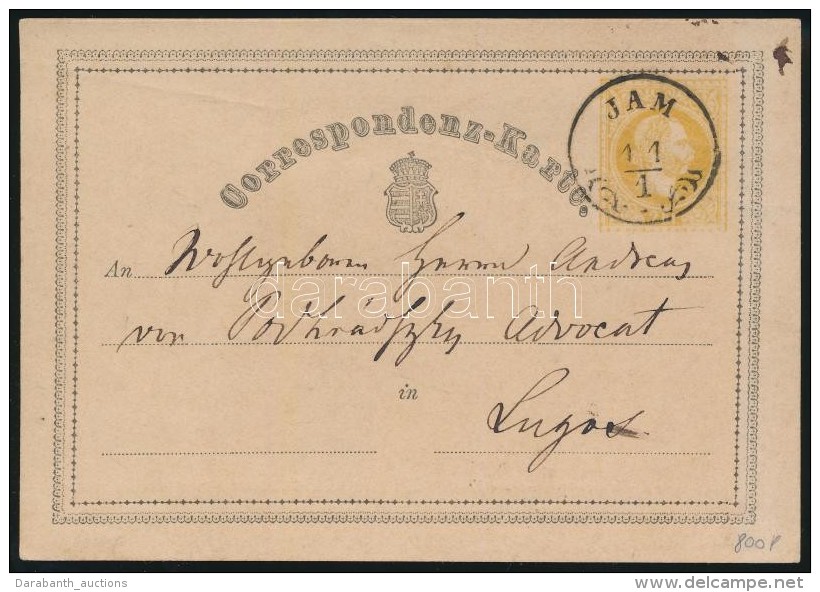 JAM
11
1
Correspondenz-Karte.
An Wohlgeboren Herrn Andreas
darabanth
von Podhrádszky Advocat
in
Lugos
800P
Darabanth_auctions
www.delcampe.net